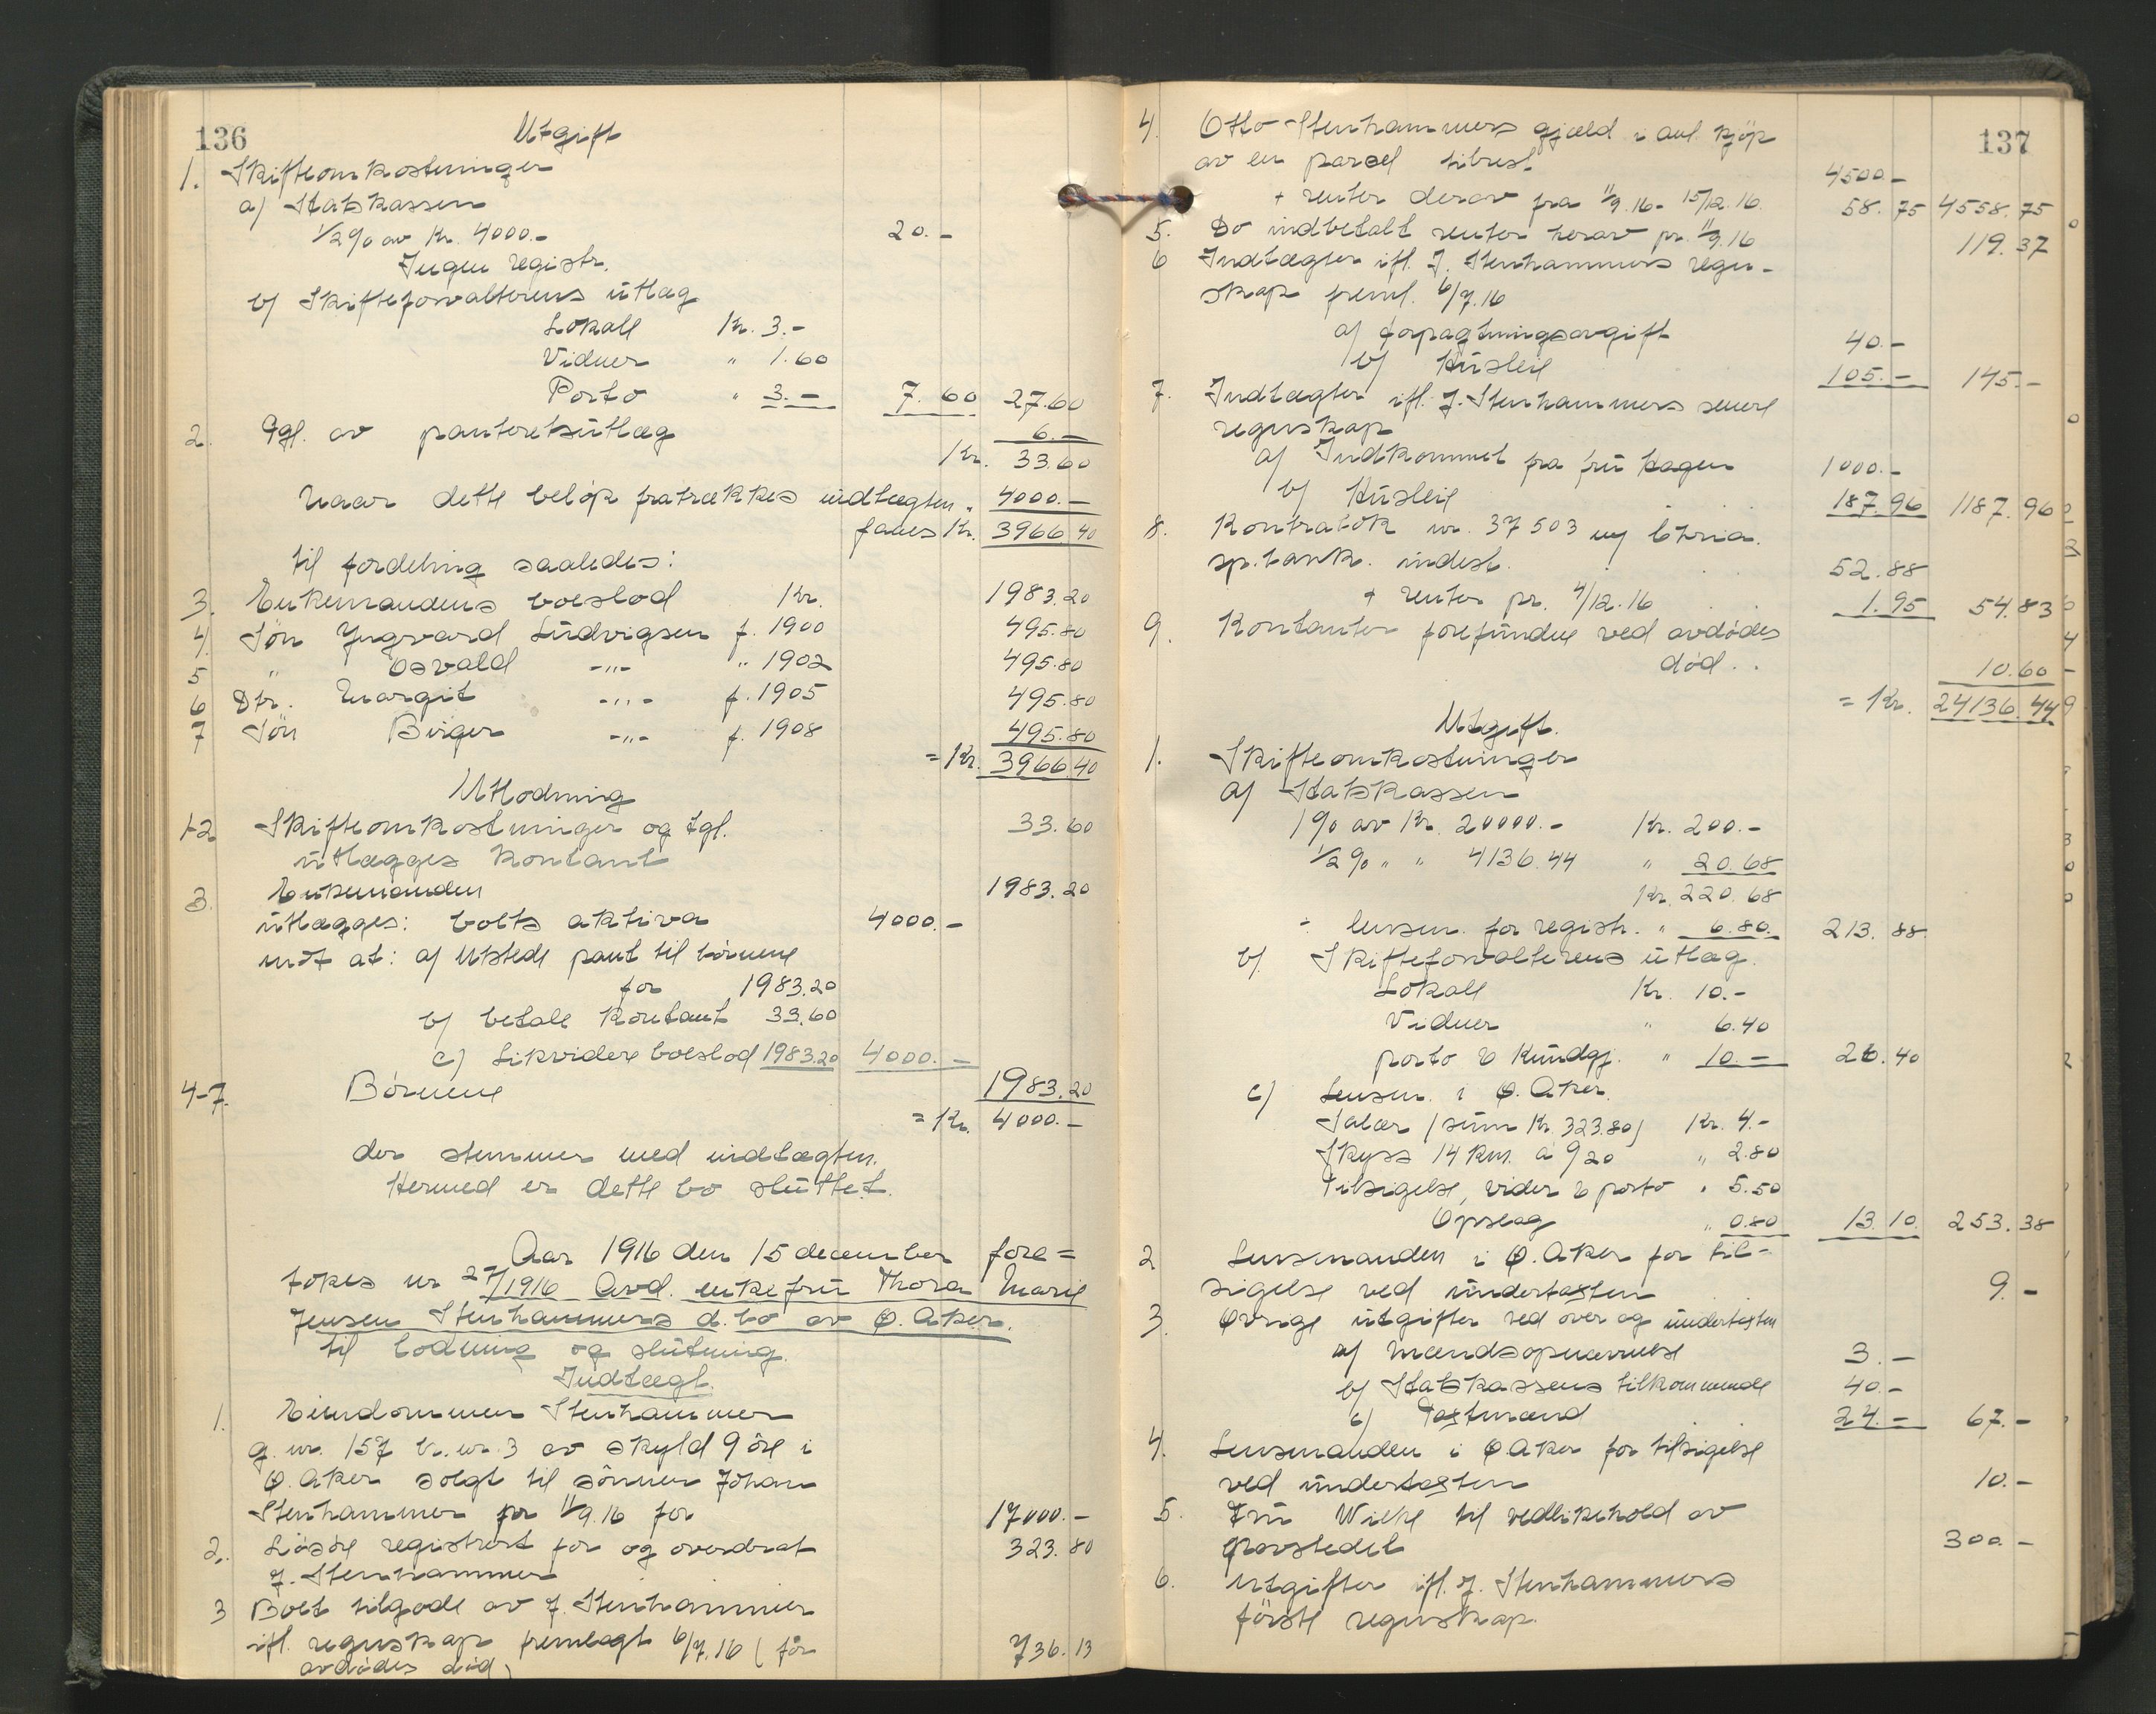 136
Utgift
1. Skifteomkostninger
a) Statskassen
1/2% av Kr. 4000.- 20.-
Ingen registr.
b) Skifteforvalterens utlæg
Lokale Kr. 3.-
Vidner " 1.60
Porto " 3.- 7.60 27.60
2. Tgl. av panteretsutlæg 6.-
Kr. 33.60
Naar dette beløp fratrækkes indtægten " 4000.-
faaes Kr. 3966.40
til fordeling saaledes:
3. Enkemandens boeslod Kr. 1983.20
4) Søn Yngvard Ludvigsen f. 1900 495.80
5 " Osvald -"- " 1902 495.80
6 Dtr. Margit -"- f. 1905 495.80
7 Søn Birger -"- f. 1908 495.80
= Kr. 3966.40
Utlodning
1-2 Skifteomkostninger og tgl. 33.60
utlægges kontant
3. Enkemanden 1983.20
utlægges: boets aktiva 4000.-
mot at: a) Utstede pant til børnene
for 1983.20
b) betale kontant 33.60
c) Likvidere boeslod 1983.20 4000.-
4-7. Børnene 1983.20
= Kr. 4000.-
der stemmer med indtægten.
Hermed er dette bo sluttet.
Aar 1916 den 15 december fore=
tokes nr 27/1916 Avd. enkefru Thora Marie
Jensen Stenhammers d.bo av Ø. Aker.
til lodning og slutning.
Indtægt.
1. Eiendommen Stenhammer
g.nr. 157 br.nr. 3 av skyld 9 øre i
Ø. Aker solgt til sønnen Johan
Stenhammer pr 11/9.16 for 17000.-
2. Løsøre registrert for og overdrat
J. Stenhammer 323.80
3 Boet tilgode av J. Stenhammer
ifl. regnskap fremlagt 6/7.16 (før 736.13
avdødes død)
137
4. Otto Stenhammers gjæld i anl. kjøp
av en parcel tilrest. 4500.-
+ renter derav fra 11/9.16 - 15/12.16. 58.75 4558.75
5. Do indbetalt renter herav pr. 11/9.16 119.37
6 Indtægter ifl. J. Stenhammers regn-
skap freml. 6/7.16
a) forpagtningsavgift 40.-
b) Husleie 105.- 145.-
7. Indtægter ifl. J. Stenhammers senere
regnskap
a) Indkommet fra fru Hagen 1000.-
b) Husleie 187.96 1187.96
8. Kontrabok nr. 37503 m/ Chria.
sp.bank. indest. 52.88
+ renter pr. 4/12.16 1.95 54.83
9. Kontanter forefundne ved avdødes
død.. 10.60
= Kr. 24136.44
Utgift.
1. Skifteomkostninger
a) Statskassen
1% av Kr. 20000.- Kr. 200.-
1/2% " " 4136.44 " 20.68
Kr. 220.68
÷ lensm. for registr. " 6.80. 213.88
b) Skifteforvalterens utlæg.
Lokale Kr. 10.-
Vidner " 6.40
porto & kundgj. " 10.- 26.40
c) Lensm. i Ø. Aker.
Salær (sum Kr. 323.80) Kr. 4.-
Skyss 14 km. à 920 " 2.80
Tilsigelse, vider & porto " 5.50
Opslag " 0.80 13.10 253.38
2 Lensmanden i Ø. Aker for til-
sigelse ved undertaxten 9.-
3. Øvrige utgifter ved over og undertaxten
a) Mandsopnævnelse 3.-
b) Statskassens tilkommende 40.-
c) Taxtmænd 24.- 67.-
4. Lensmanden i Ø Aker for tilsigelse
ved undertaxten 10.-
5. Fru til vedlikehold av
gravstedet 300.-
6. Utgifter ifl. J. Stenhammers
første regnskap.